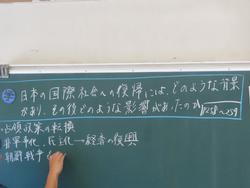 日本の国際社会への復帰には、どのような背景
があり、その後どのような影響があったのか P258~259
・占領政策の転換
非軍事化、民主化→経済の復興
・朝鮮戦争